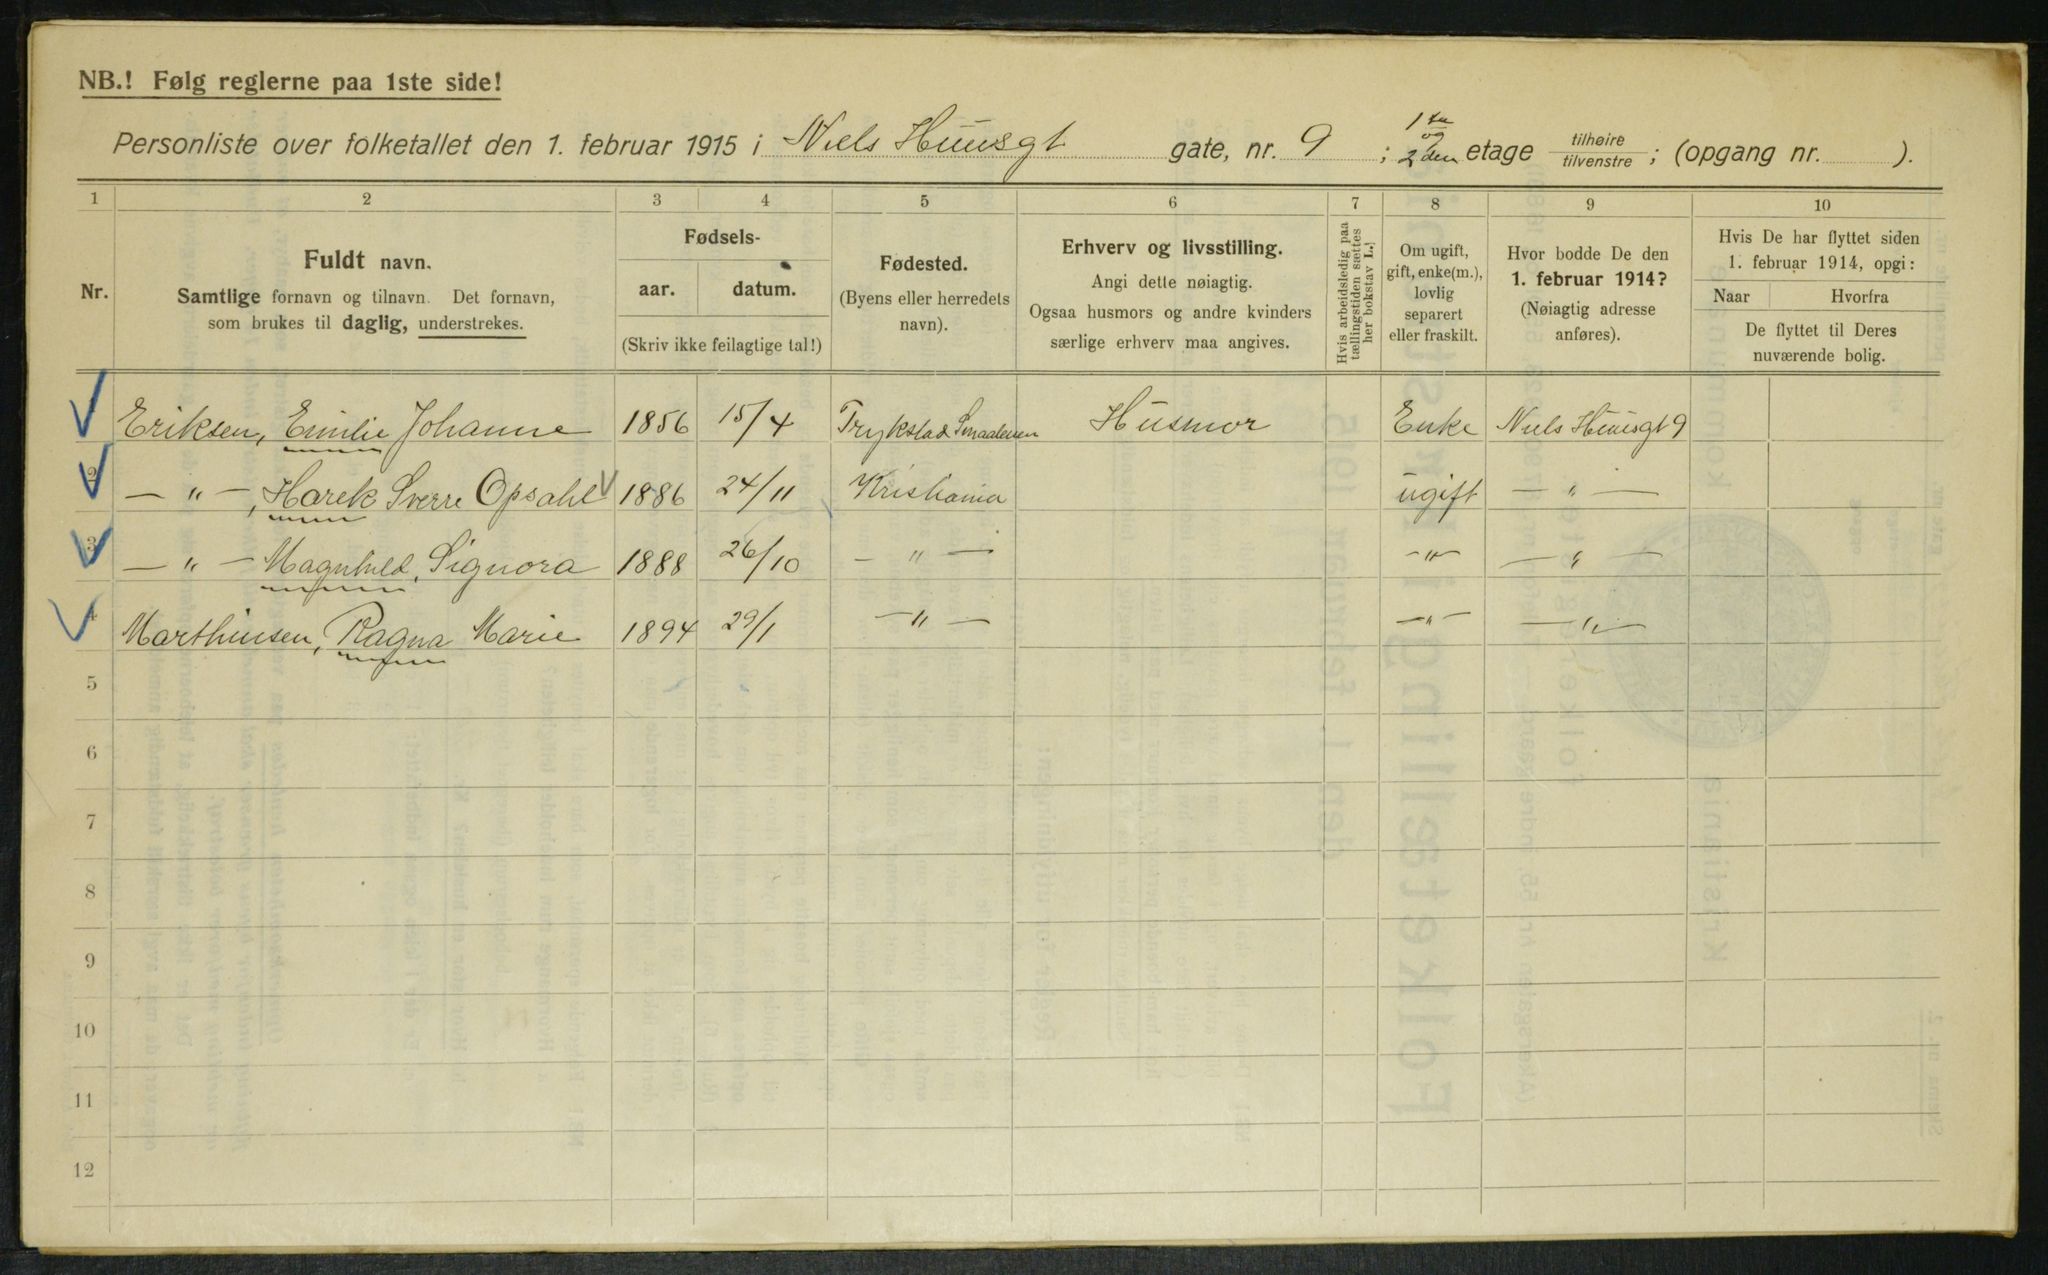 NB.! Følg reglerne paa 1ste side!
Personliste over folketallet den 1. februar 1915 i Niels Huusgt gate, nr. 9 ; 1ste og 2den etage tilhøire tilvenstre ; (opgang nr. ).
1 2 3 4 5 6 7 8 9 10
Nr.
Fuldt navn.
Samtlige fornavn og tilnavn. Det fornavn,
som brukes til daglig, understrekes.
Fødsels-
aar. datum.
(Skriv ikke feilagtige tal!)
Fødested.
(Byens eller herredets
navn).
Erhverv og livsstilling.
Angi dette nøiagtig.
Ogsaa husmors og andre kvinders
særlige erhverv maa angives.
Hvis arbeidsledig paa
tællingstiden sættes
her bokstav L.!
Om ugift,
gift, enke(m.),
lovlig
separert
eller fraskilt.
Hvor bodde De den
1. februar 1914?
(Nøiagtig adresse
anføres).
Hvis De har flyttet siden
1. februar 1914, opgi:
Naar Hvorfra
De flyttet til Deres
nuværende bolig.
Eriksen, Emilie Johanne 1856 15/4 Trykstad Smaalenen Husmor Enke Niels Huusgt 9
2 — " —, Harek Sverre Opsahl 1886 24/11 Kristiania ugift — " —
3 — " — Magnhild, Signora 1888 26/10 — " — — " — — " —
4 Marthinsen, Ragna Marie 1894 29/1 — " — — " — — " —
5
6
7
8
9
10
11
12